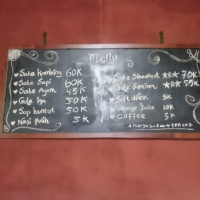 Menu
Sate Kambing 60K
Sate Sapi 60K
Sate Ayam 45K
Gule Iga 50K
Sop buntut 50K
Nasi Putih 5K
70K
55K
Soft drink 5K
Orange Juice 10K
Coffee 5K